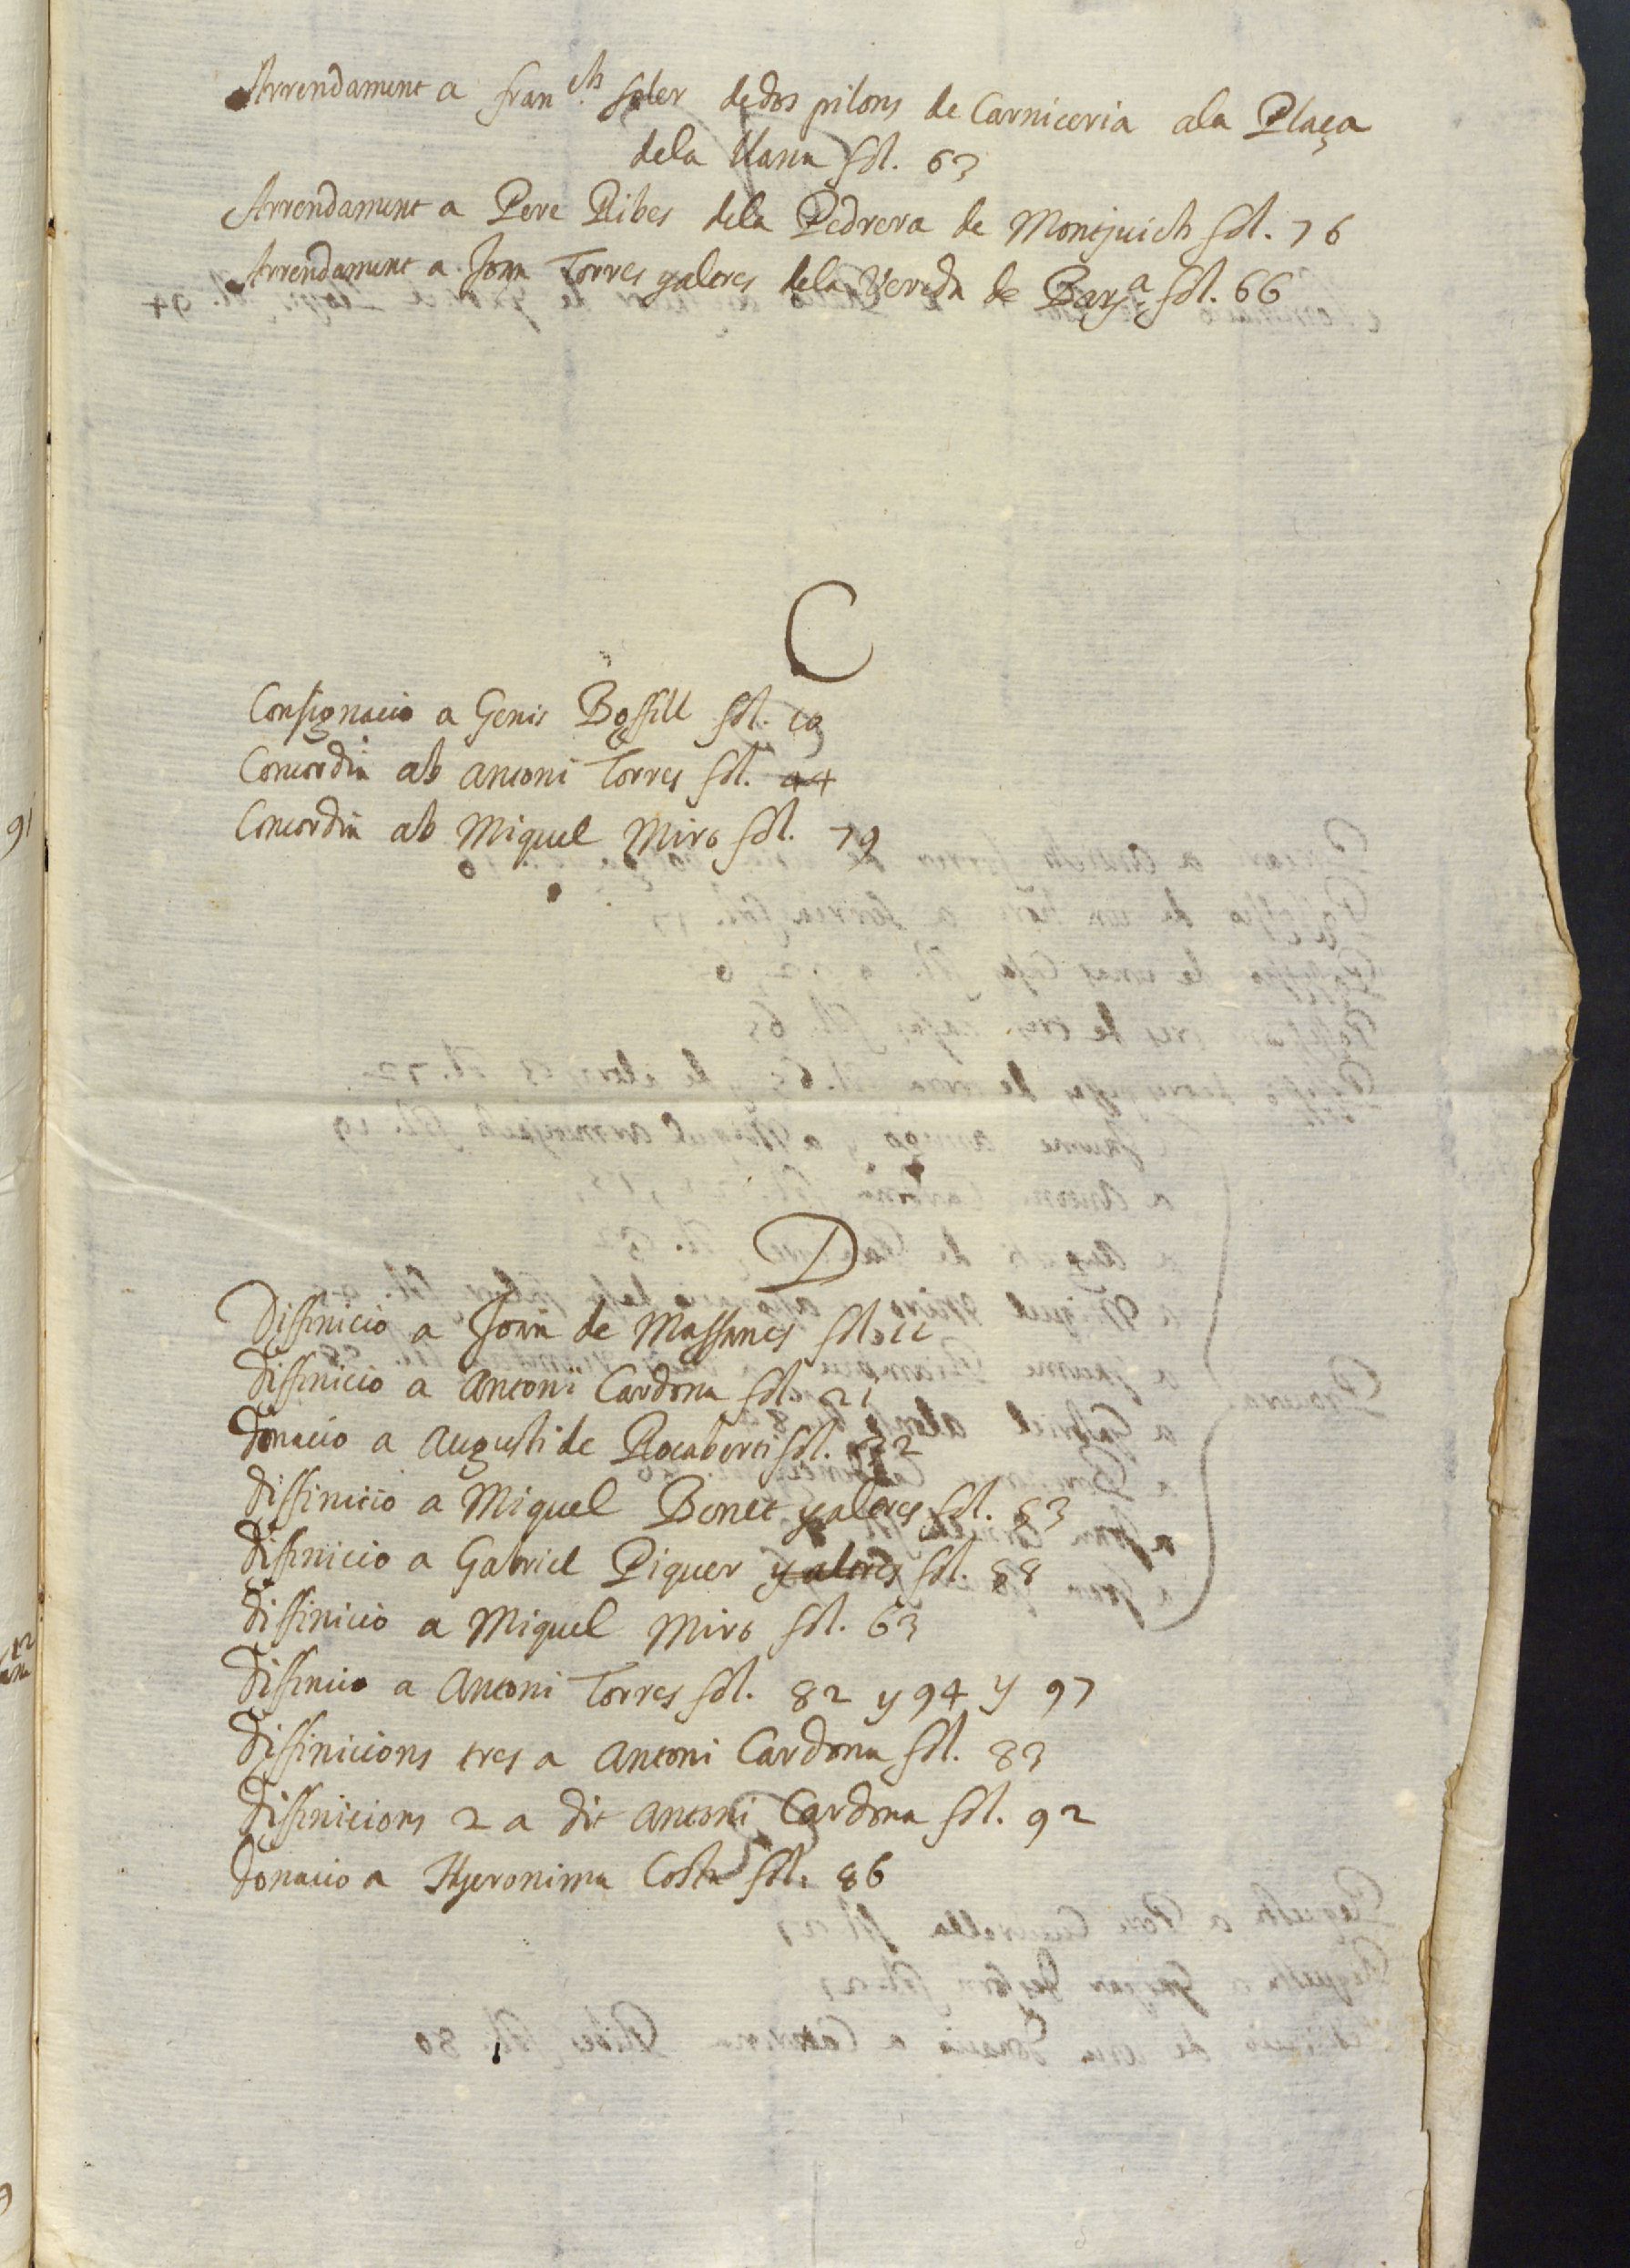 Arrendament a fran.ch soler dedos pilons de Carniceria ala Plaça
dela llana fol. 63
Arrendament a Pere Ribes dela Pedrera de Montjuich fol. 76
Arrendament a Joan Torres yaltres dela Vereda de Barsª fol. 66
C
Consignacio a Genis Boffill fol. 19
Concordia ab Antoni Torres fol. 44
Concordia ab Miquel Miro fol. 79
D
Diffinicio a Joan de Massanes fol. 11
Diffinicio a Antoni Cardona fol. 21
Donacio a Augusti de Rocaberti fol. 32
Diffinicio a Miquel Bonet yaltres fol. 83
Diffinicio a Gabriel Piquer yaltres fol. 88
Diffinicio a Miquel Miro fol. 63
Diffincio a Antoni Torres fol. 82 y 94 y 97
Diffinicions tres a Antoni Cardona fol. 83
Diffinicions 2 a dit Antoni Cardona fol. 92
Donacio a Hyeronima Costa fol. 86